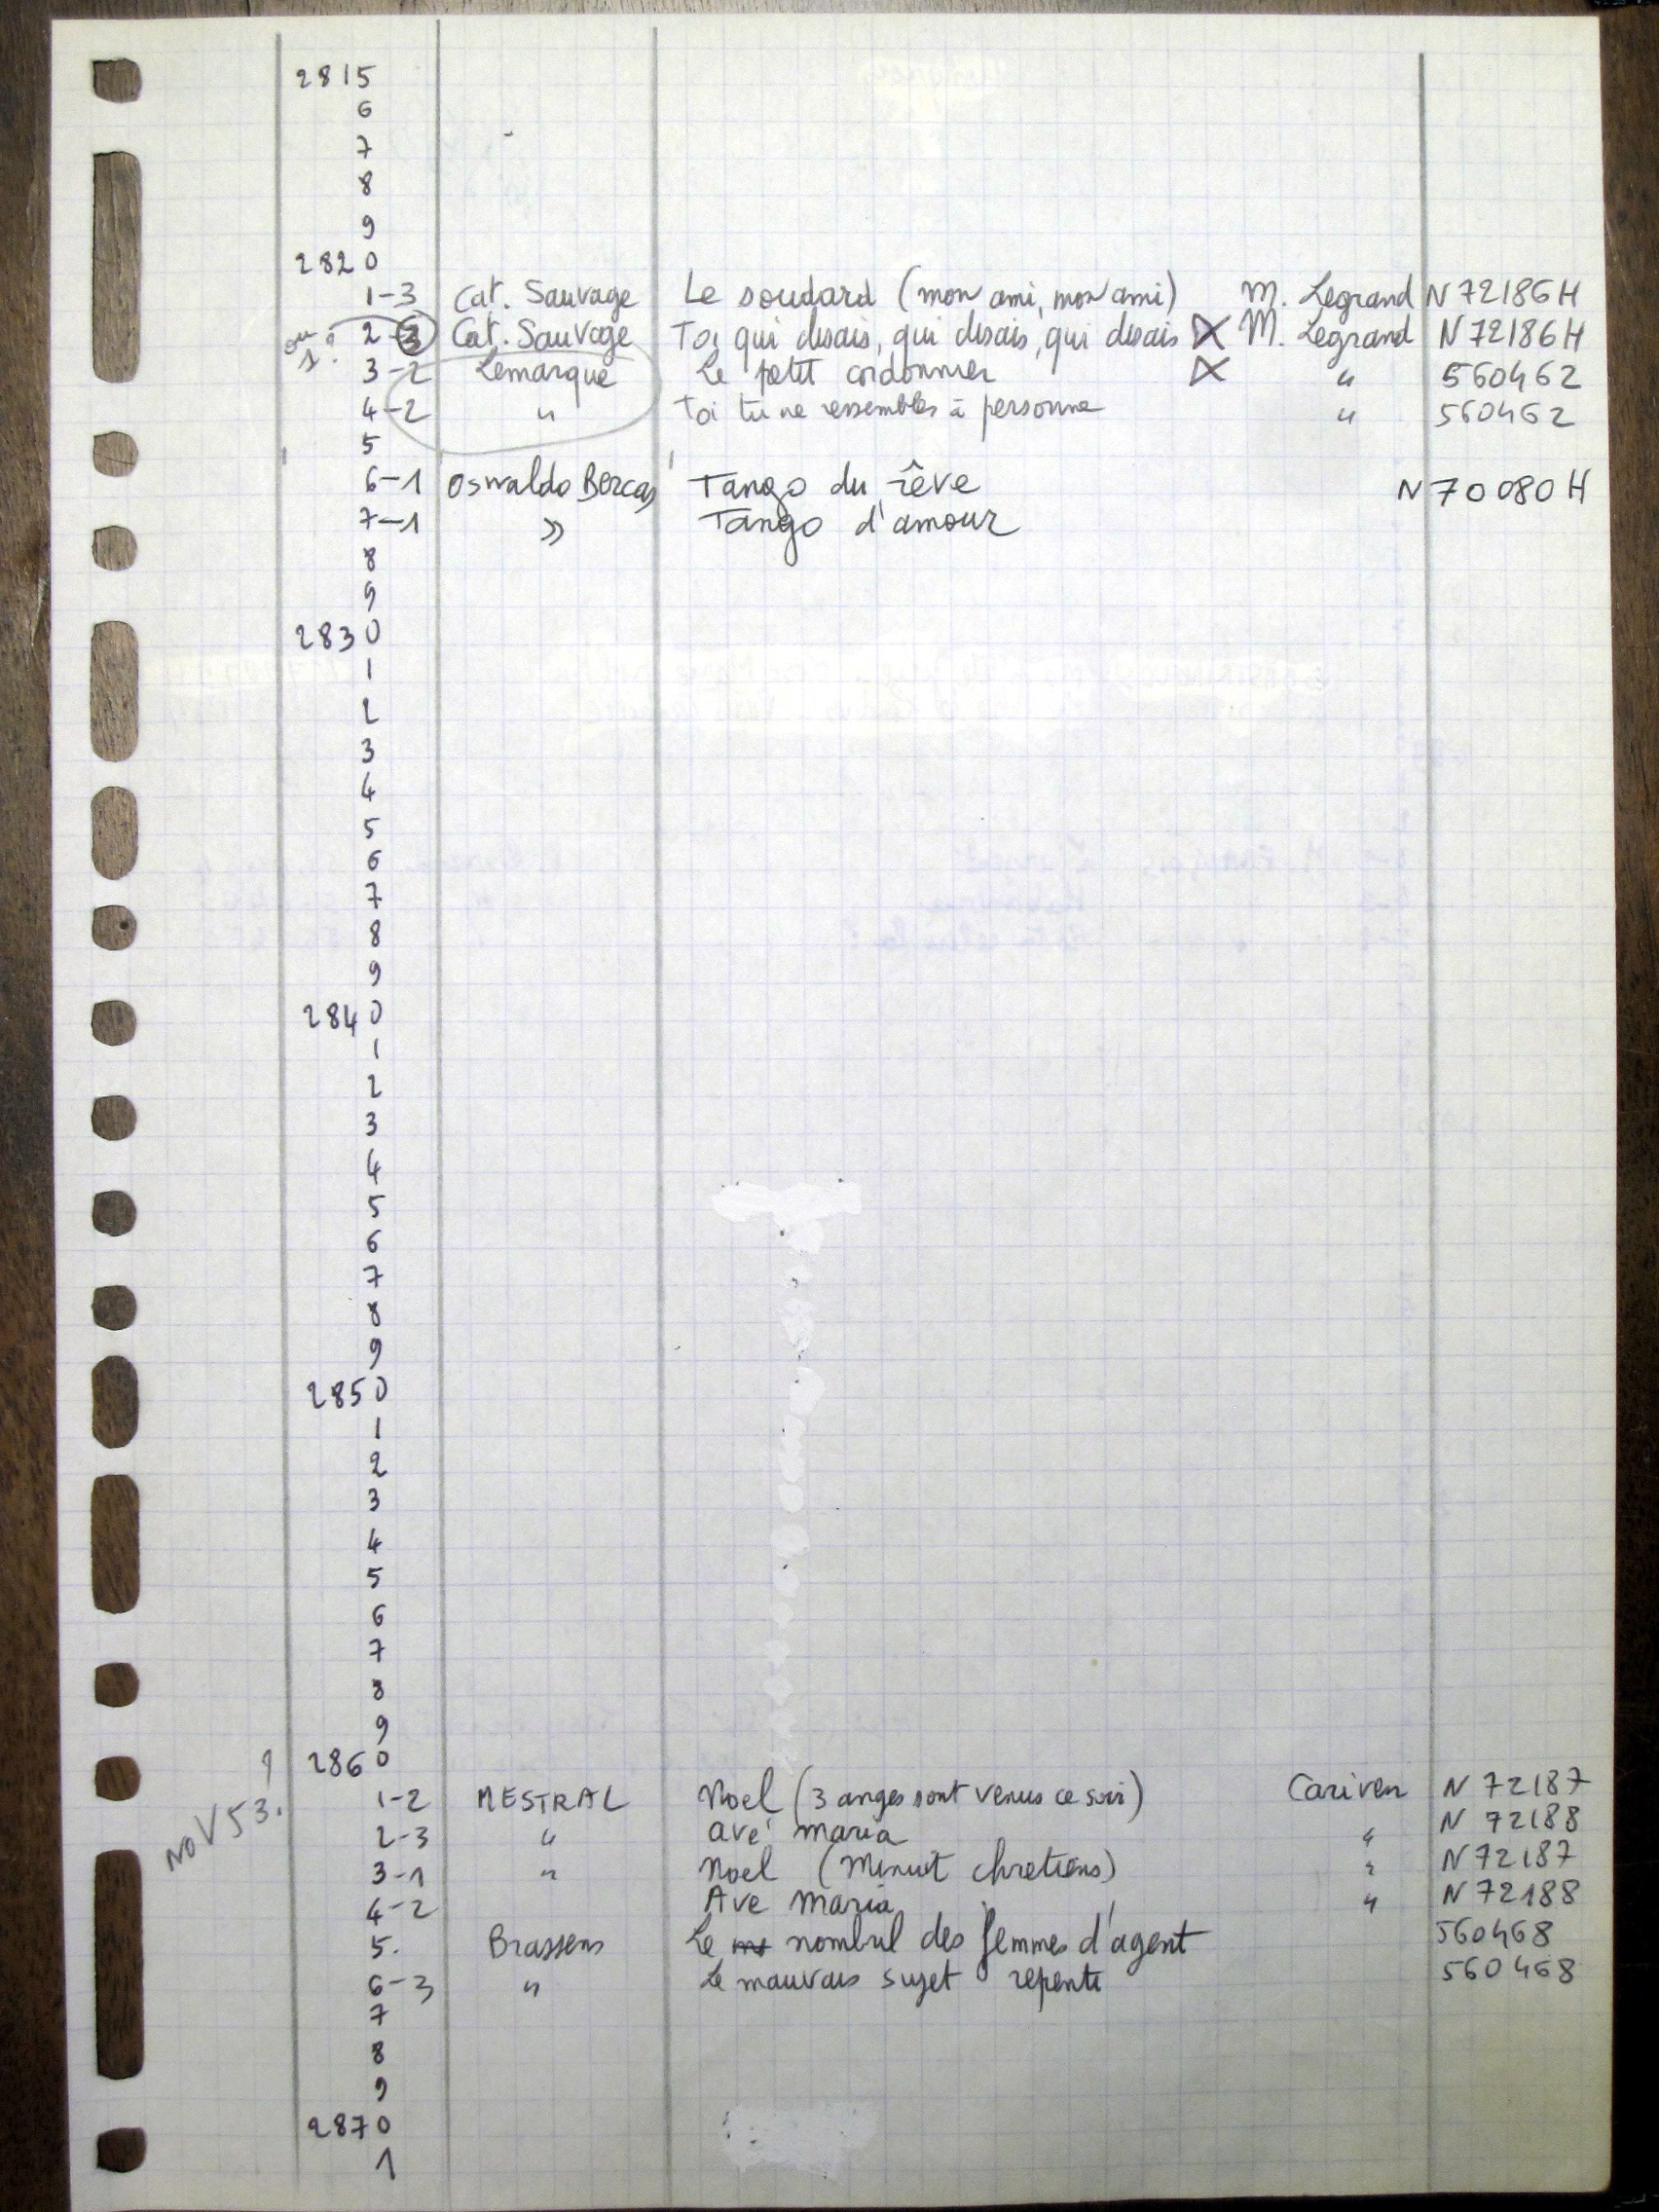 2815
6
7
8
9
2820
1-3 Cat. Sauvage Le soudard (mon ami, mon ami) M. Legrand N 72186 H
ou 1? 2-3 Cat. Sauvage Toi qui disais, qui disais, qui disais M. Legrand N 72186 H
3-2 Lemarque Le petit cordonnier " 560462
4-2 " Toi tu ne ressembles à personne " 560462
5
6-1 Oswaldo Bercas Tango du rêve N 70080 H
7-1 » Tango d'amour
8
9
2830
1
2
3
4
5
6
7
8
9
2840
1
2
3
4
5
6
7
8
9
2850
1
2
3
4
5
6
7
8
9
? 2860
NOV 53. 1-2 MESTRAL Noel (3 anges sont venus ce soir) Cariven N 72187
2-3 " avé maria " N 72188
3-1 " Noel (Minuit chretiens) " N 72187
4-2 Ave maria " N 72188
5. Brassens Le nombril des femmes d'agent 560468
6-3 " Le mauvais sujet repenti 560468
7
8
9
2870
1